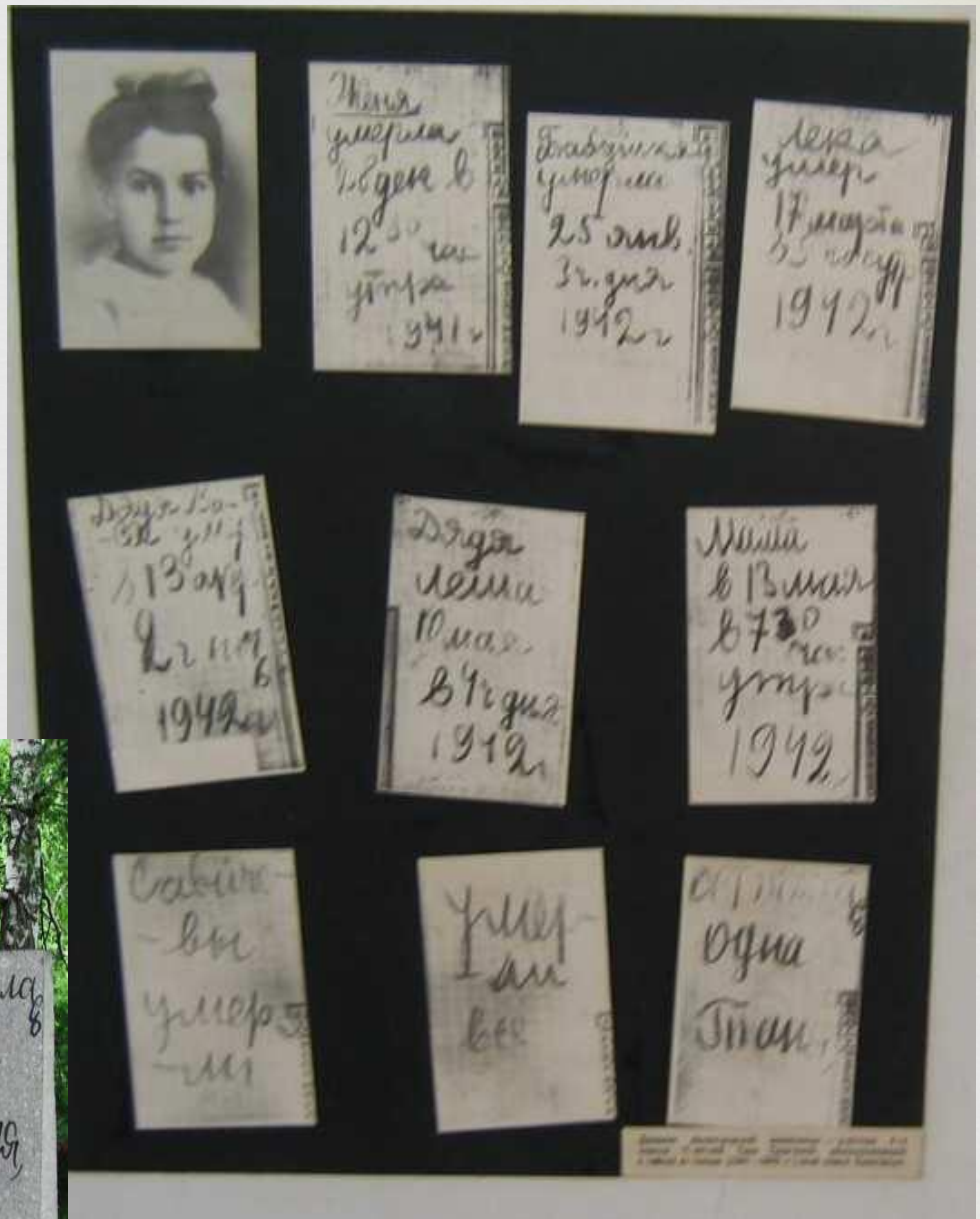 Женя
умерла
28 дек в
12 30 час
утра
1941 г
Бабушка
умерла
25 янв.
3 ч. дня
1942 г
Лека
умер
17 марта
1942 г
Дядя Ва-
-ся ум
13 апр
2 ч ноч
1942 г
Дядя
Леша
10 мая
в 4 ч дня
1942 г
Мама
в 13 мая
в 7 30 час
утра
1942
Савиче-
-вы
умер
-ли
умер-
-ли
все
одна
Таня
ла
в
я